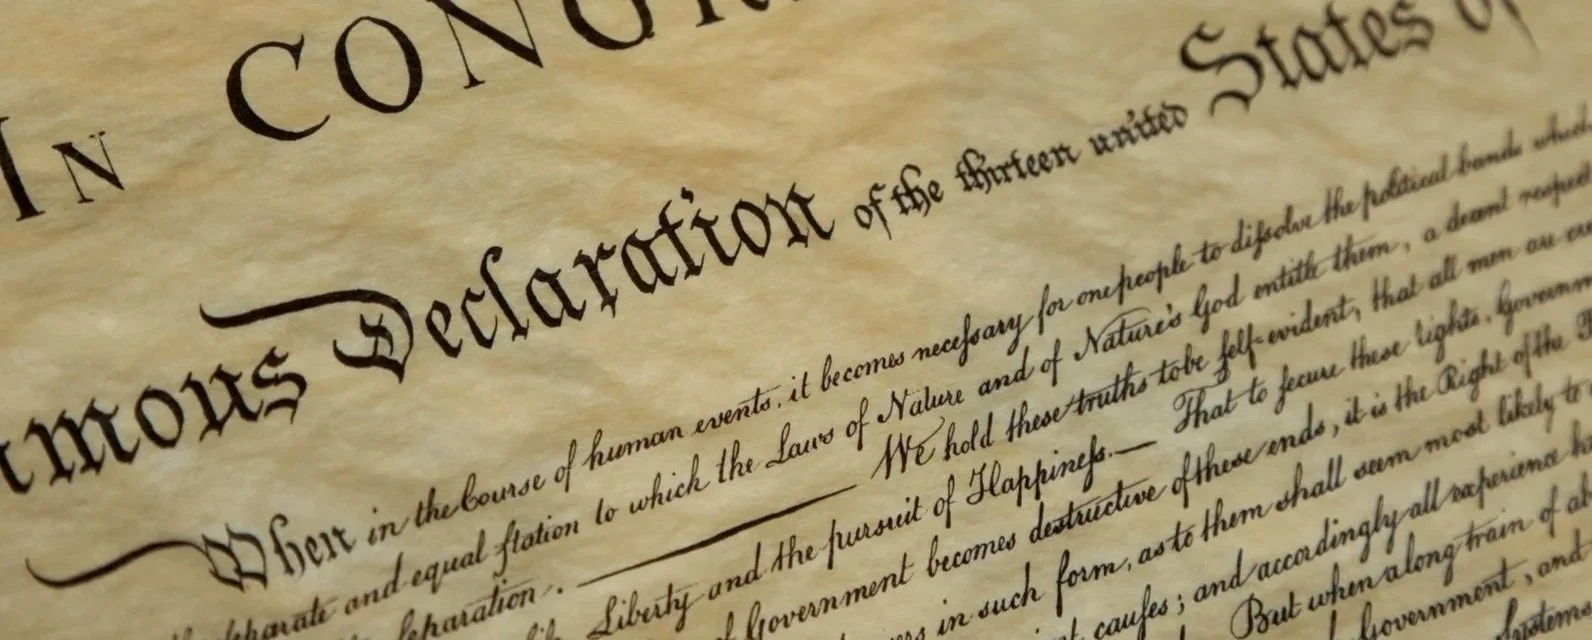 IN CONGR
mous Declaration of the thirteen united States of
When in the Course of human events, it becomes neceſsary for one people to diſsolve the political bands which
ſeparate and equal ſtation to which the Laws of Nature and of Nature's God entitle them, a decent respect
ſeparation. We hold these truths to be ſelf-evident, that all men are cre
Liberty and the pursuit of Happineſs.— That to ſecure these rights, Governm
Government becomes destructive of these ends, it is the Right of the
in such form, as to them shall seem most likely to
cauſes; and accordingly all experience ha
But when a long train of ab
Government, and